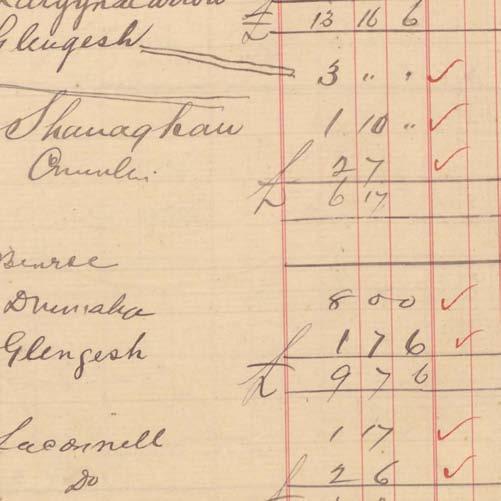 £ 13 16 6
Glengesh 3 " " ✓
Shanaghan 1 10 " ✓
2 7 ✓
£ 6 17
Drumaha 8 0 0 ✓
Glengesh 1 7 6 ✓
£ 9 7 6
1 17 ✓
Do 2 6 ✓